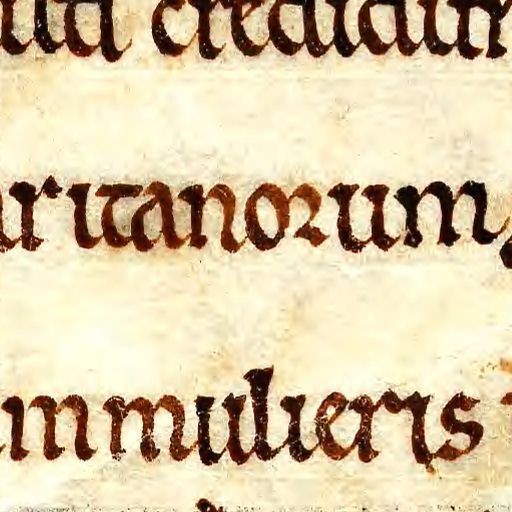 credidit
aritanorum
mmulieris